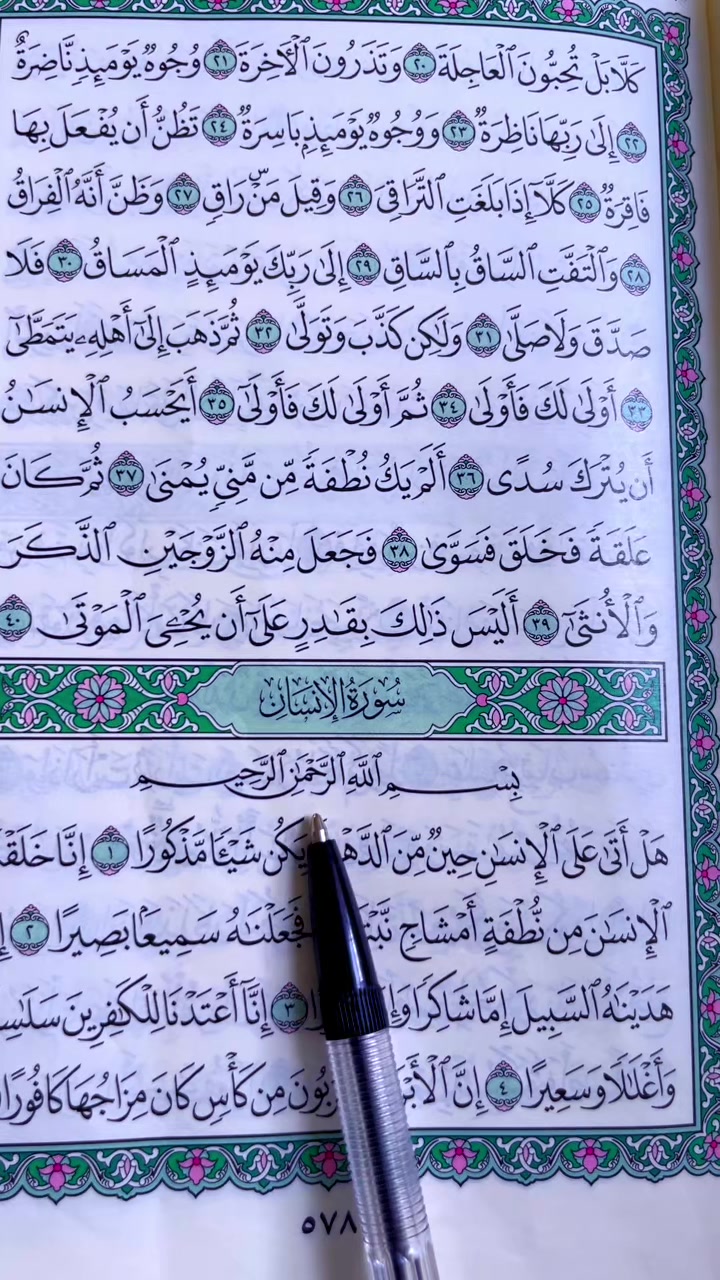 كَلَّا بَلْ تُحِبُّونَ ٱلْعَاجِلَةَ ٢٠ وَتَذَرُونَ ٱلْأٓخِرَةَ ٢١ وُجُوهٌ يَوْمَئِذٍ نَّاضِرَةٌ
٢٢ إِلَىٰ رَبِّهَا نَاظِرَةٌ ٢٣ وَوُجُوهٌ يَوْمَئِذٍۭ بَاسِرَةٌ ٢٤ تَظُنُّ أَن يُفْعَلَ بِهَا
فَاقِرَةٌ ٢٥ كَلَّآ إِذَا بَلَغَتِ ٱلتَّرَاقِيَ ٢٦ وَقِيلَ مَنْۜ رَاقٍ ٢٧ وَظَنَّ أَنَّهُ ٱلْفِرَاقُ
٢٨ وَٱلْتَفَّتِ ٱلسَّاقُ بِٱلسَّاقِ ٢٩ إِلَىٰ رَبِّكَ يَوْمَئِذٍ ٱلْمَسَاقُ ٣٠ فَلَا
صَدَّقَ وَلَا صَلَّىٰ ٣١ وَلَٰكِن كَذَّبَ وَتَوَلَّىٰ ٣٢ ثُمَّ ذَهَبَ إِلَىٰٓ أَهْلِهِۦ يَتَمَطَّىٰٓ
٣٣ أَوْلَىٰ لَكَ فَأَوْلَىٰ ٣٤ ثُمَّ أَوْلَىٰ لَكَ فَأَوْلَىٰٓ ٣٥ أَيَحْسَبُ ٱلْإِنسَٰنُ
أَن يُتْرَكَ سُدًى ٣٦ أَلَمْ يَكُ نُطْفَةً مِّن مَّنِيٍّ يُمْنَىٰ ٣٧ ثُمَّ كَانَ
عَلَقَةً فَخَلَقَ فَسَوَّىٰ ٣٨ فَجَعَلَ مِنْهُ ٱلزَّوْجَيْنِ ٱلذَّكَرَ
وَٱلْأُنثَىٰٓ ٣٩ أَلَيْسَ ذَٰلِكَ بِقَٰدِرٍ عَلَىٰٓ أَن يُحْـِۧيَ ٱلْمَوْتَىٰ ٤٠
سُورَةُ الإِنسَان
بِسْمِ ٱللَّهِ ٱلرَّحْمَٰنِ ٱلرَّحِيمِ
هَلْ أَتَىٰ عَلَى ٱلْإِنسَٰنِ حِينٌ مِّنَ ٱلدَّهْ يَكُن شَيْـًٔا مَّذْكُورًا ١ إِنَّا خَلَقْ
ٱلْإِنسَٰنَ مِن نُّطْفَةٍ أَمْشَاجٍ نَّبْتَ فَجَعَلْنَٰهُ سَمِيعًۢا بَصِيرًا ٢
هَدَيْنَٰهُ ٱلسَّبِيلَ إِمَّا شَاكِرًا ٣ إِنَّآ أَعْتَدْنَا لِلْكَٰفِرِينَ سَلَٰسِ
وَأَغْلَٰلًا وَسَعِيرًا ٤ إِنَّ ٱلْأَبْ مِن كَأْسٍ كَانَ مِزَاجُهَا كَافُورًا
٥٧٨